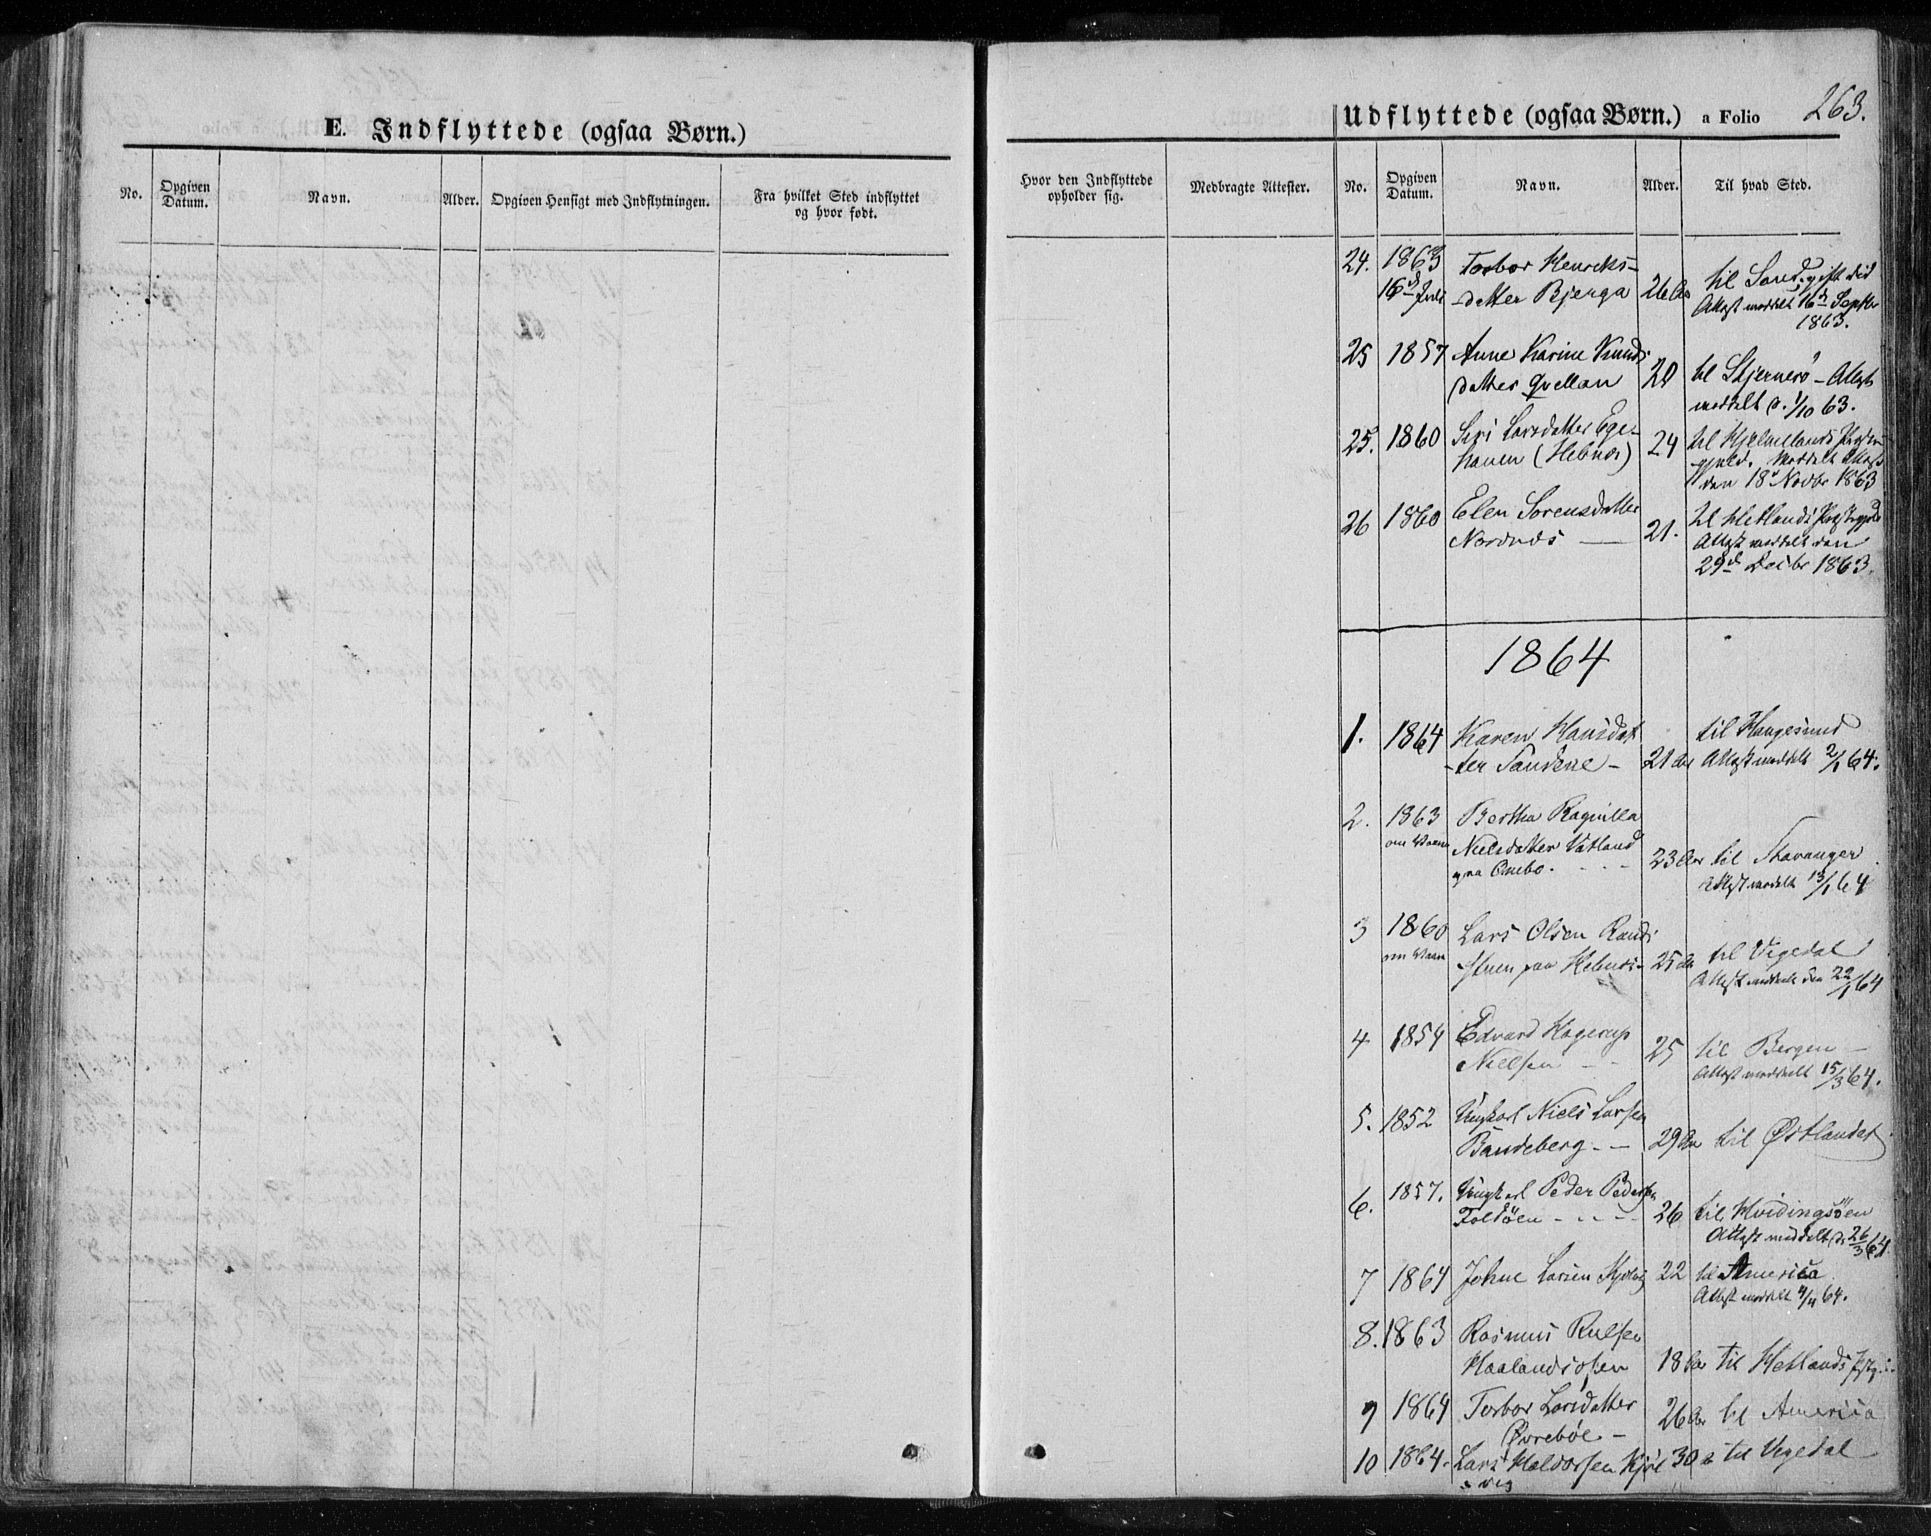 E. Indflyttede (ogsaa Børn.)
No.
Opgiven Datum.
Navn.
Alder.
Opgiven Hensigt med Indflytningen.
Fra hvilket Sted indflyttet
og hvor født.
Udflyttede (ogsaa Børn.) a Folio 263.
Hvor den Indflyttede
opholder sig.
Medbragte Attester.
No.
Opgiven Datum.
Navn.
Alder.
Til hvad Sted.
24. 1863 Torbor Henriks-
16d Juli -datter Bjerga 26 Aar til Sand, gift did
Attest meddelt 16d Septbr
1863.
25 1857 Anne Karine Knuds
datter Qvellan 20 til Stjernerö - Attest
meddelt d. 1/10 63.
25. 1860 Siri Larsdatter Ege-
hauen (Hebnes) 24 til Hjelmelands Præste
gjeld. Meddelt Attest
den 18d Novbr 1863
26 1860 Elen Sorensdatter
Nordnes — 21. til Hetlands Præstegjeld
Attest meddelt den
29d Decbr 1863.
1864
1. 1864 Karen Hansdat
-ter Sandene - 21 Aar til Haugesund
Attest meddelt 2/1 64.
2. 1863 Bertha Ragnilla
om Vaaren Nielsdatter Vatland
paa Ombo. - - - 23 Aar til Stavanger
Attest meddelt 13/1 64
3 1860 Lars Olsen Rands
om Vaaren stuen paa Hebnes - 25 Aar til Vigedal
Attest meddelt den 22/1 64
4 1854 Edvard Hagerup
Nielsen - - 25 til Bergen —
Attest meddelt 15/3 64.
5. 1852 Ungkarl Niels Larsen
Bandeberg - — 29 Aar til Østlandet
6. 1857. Ungkarl Peder Pedersen
Foldöen - - - - 26 til Hvidingsöen
Attest meddelt d. 26/3 64.
7 1864 Johne Larsen Kjolvig 22 til America
Attest meddelt 4/4 64.
8. 1863 Rasmus Rulsen
Haalandsosen 18 Aar til Hetlands Pstg.
9 1864 Torbor Larsdatter
Øvrebøe - 26 Aar til America
10 1864. Lars Haldorsen Kjöl 30 a til Vigedal
vig